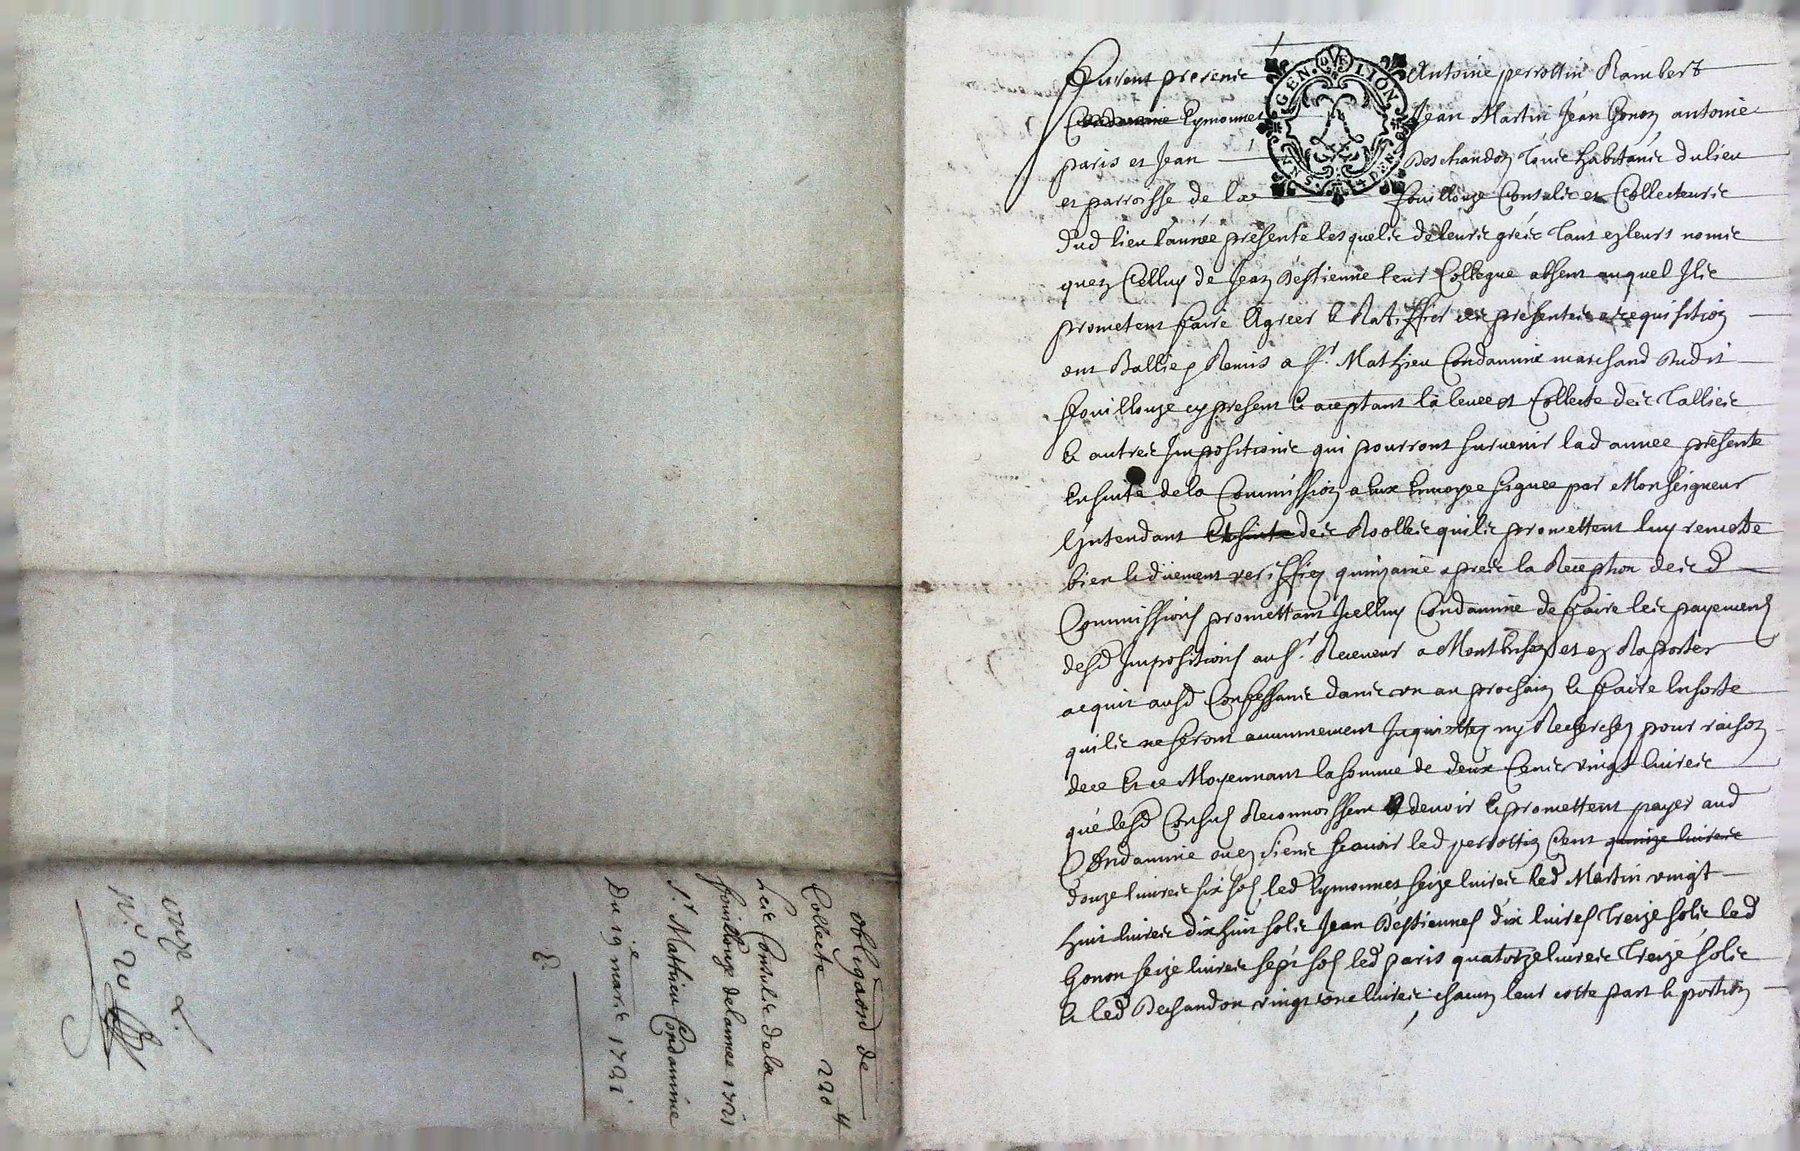 obligaõn de
Collecte 220 ₶
Les Consulz de la
fouillouze de lannee 1721
Sr Mathieu Condamine
Du 19e mars 1721
GEN DE LION
Furent presens Antoine perrottin Rambert
Condamine Eymonnet Jean Martin Jean Gonon antoine
paris et Jean Deschandon tous habitans du lieu
et parroisse de la fouillouze Consulz et Collecteurs
dud lieu l'année presente lesquels de leurs grés tant en leurs noms
quen Celluy de Jean Destienne leur Collegue absent auquel Ils
prometent faire Agreer & Ratiffier ces presentes a requisition
ont Ballié & Remis a Sr. Mathieu Condamine marchand dudit
fouillouze cy present & aceptant la levee et Collecte des Tallies
& autres Impositions qui pourront survenir lad annee presente
Ensuite de la Commission a Eux Envoyee signee par Monseigneur
L'Intendant Ensuite des Roolles quils promettent luy remettre
bien & duement veriffiez quinzaine apres la Reception desd
Commissions promettant Icelluy Condamine de faire les payements
desd Impositions au Sr. Receveur a Montbrison et en Raporter
acquit ausd Confessants dans un an prochain & faire Ensorte
quils ne seront aucunnement Inquiettez ny Recherchez pour raison
de ce & ce Moyennant la somme de deux Cents vingt livres
que lesd Consuls Reconnoissent devoir & promettent payer aud
Condamine ou es siens scavoir led perrottin Cent quinze livres
douze livres six sols led Eymonnet seize livres led Martin vingt
huit livres dix huit sols Jean Destiennes dix livres treize sols led
Gonon seize livres sept sols led paris quatorze livres treize sols
& led Deschandon vingt une livres chacun leur cotte part & portion